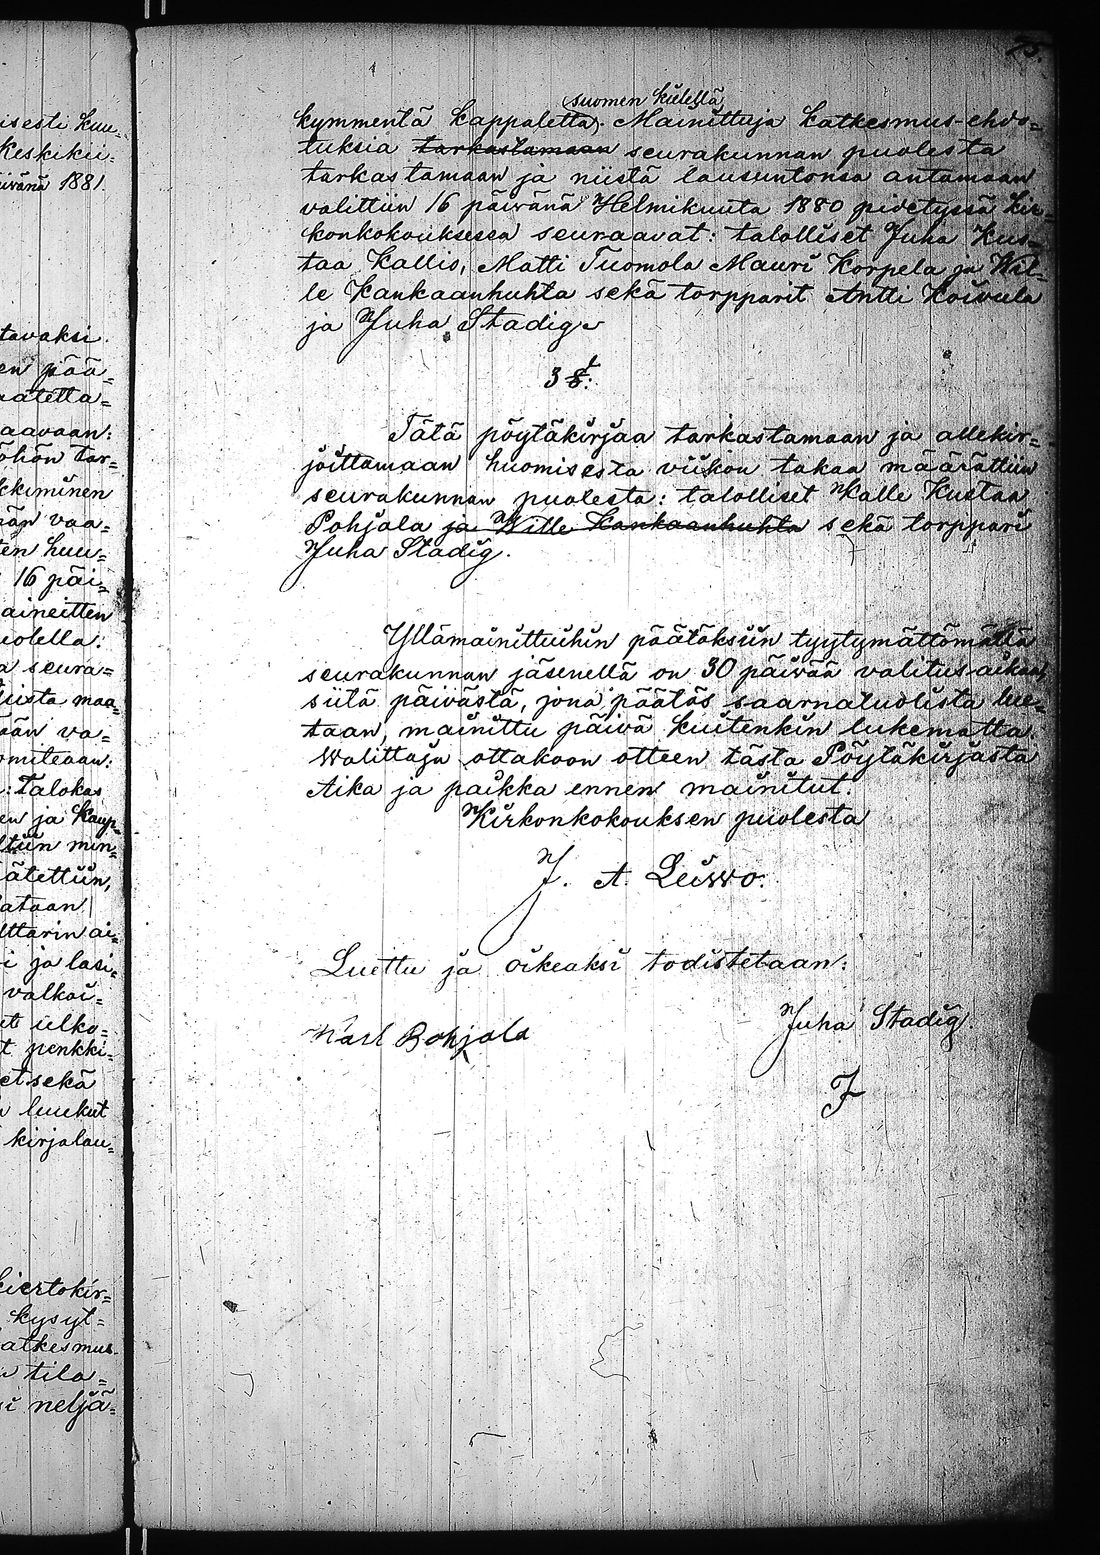 isesti kuu-
keskikii-
ivänä 1881.
tavaksi
en pää-
aatetta-
aavaan:
öhön tar-
kkiminen
ään vaa-
ten huu-
16 päi-
aineitten
uolella:
a seura-
sista maa-
ään va-
omiteaan:
: Talokas
en ja Kaup-
ttiin min-
ätettiin,
ataan
lttarin ai-
i ja lasi-
valkoi-
et ulko-
t penkki-
et sekä
luukut
kirjalau-
kiertokir-
kysyt-
atkesmus-
tila-
si neljä-
75.
suomen kielellä
kymmentä kappaletta. Mainittuja katkesmus-ehdo-
tuksia tarkastamaan seurakunnan puolesta
tarkastamaan ja niistä lausuntonsa antamaan
valittiin 16 päivänä Helmikuuta 1880 pidetyssä kir-
konkokouksessa seuraavat: talolliset Juha Kus-
taa Kallio, Matti Tuomola Mauri Korpela ja Wil-
le Kankaanhuhta sekä torpparit Antti Koivula
ja Juha Stadig.
3 §:
Tätä pöytäkirjaa tarkastamaan ja allekir-
joittamaan huomisesta viikon takaa määrättiin
seurakunnan puolesta: talolliset Kalle Kustaa
Pohjala ja Wille Kankaanhuhta sekä torppari
Juha Stadig.
Yllämainittuihin päätöksiin tyytymättömällä
seurakunnan jäsenellä on 30 päivää valitus-aikaa,
siitä päivästä, jona päätös saarnatuolista lue-
taan, mainittu päivä kuitenkin lukematta.
Walittaja ottakoon otteen tästä Pöytäkirjasta
Aika ja paikka ennen mainitut.
Kirkonkokouksen puolesta
J. A. Leiwo.
Luettu ja oikeaksi todistetaan:
Juha Stadig.
Karl Bohjala